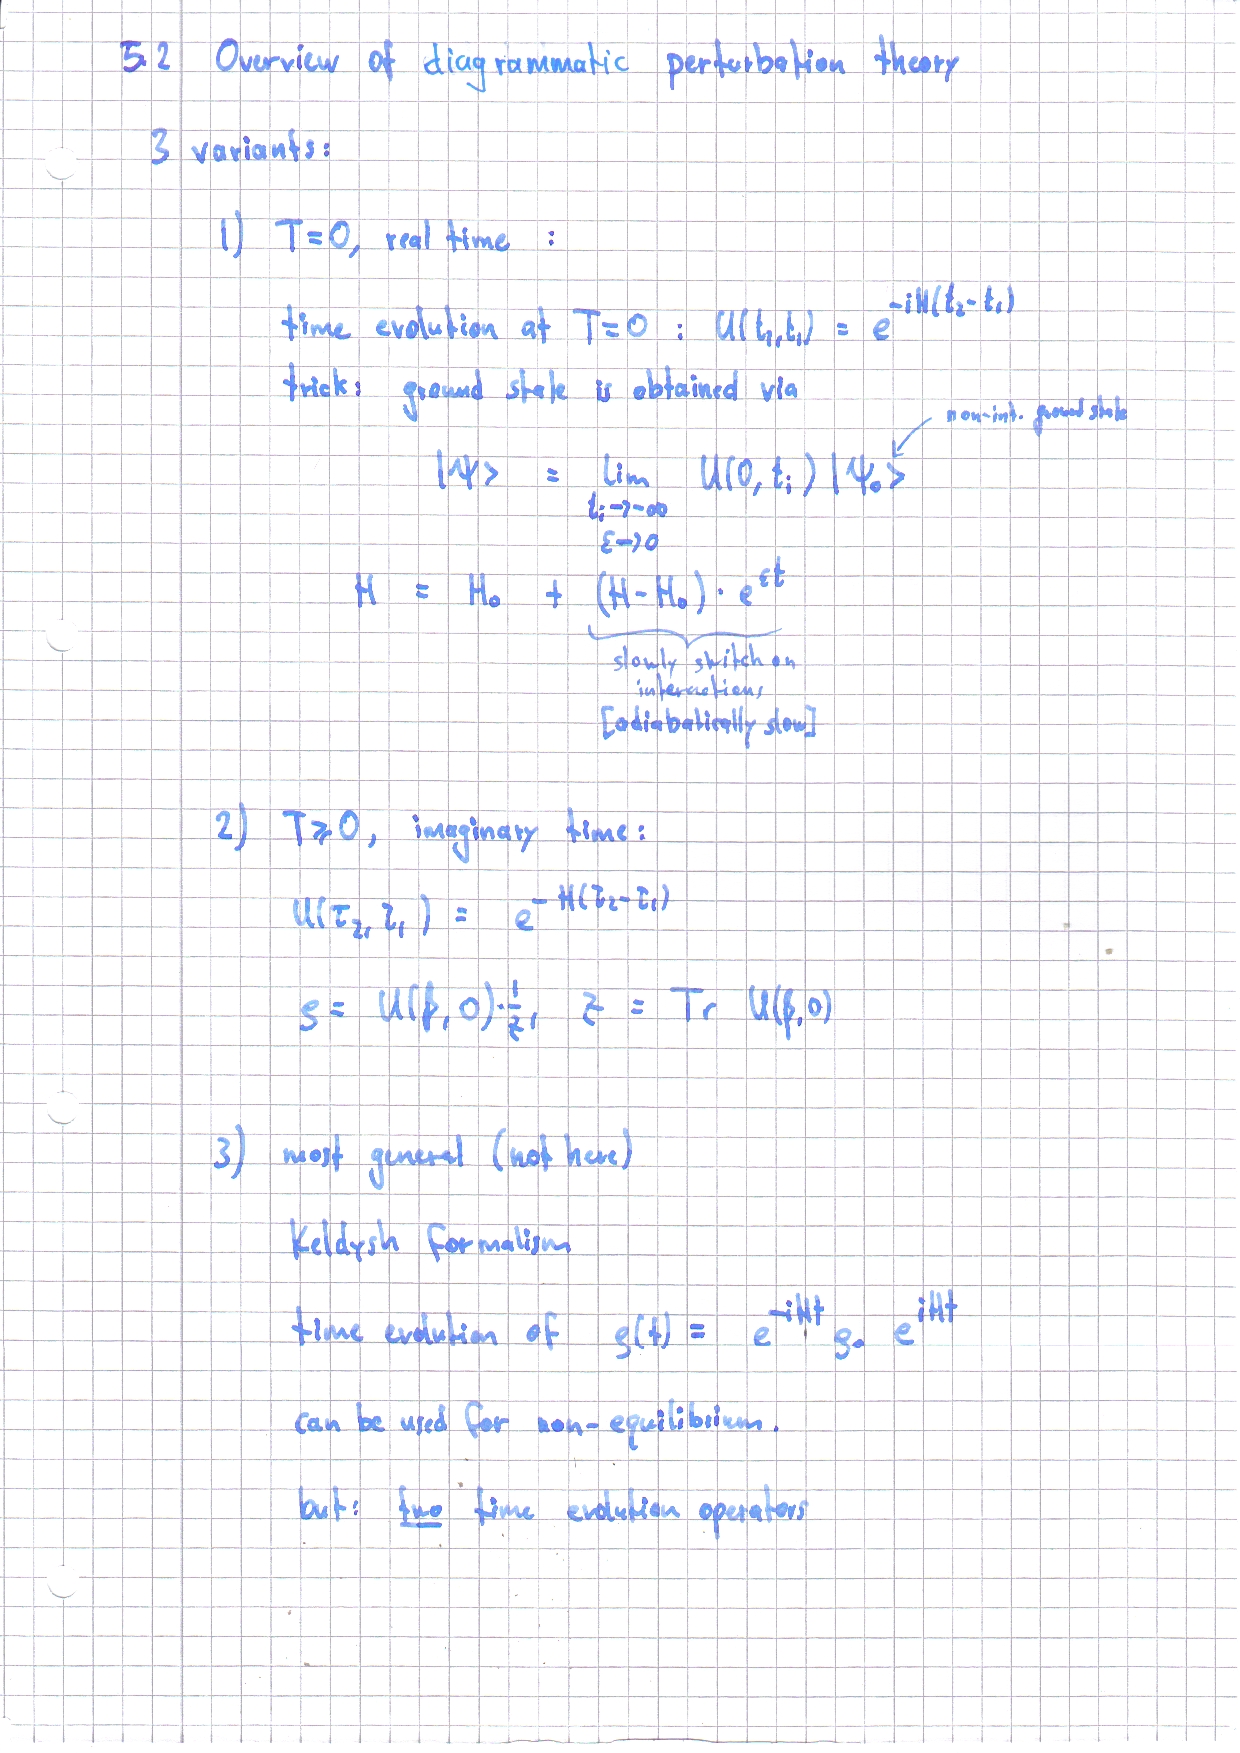 5.2 Overview of diagrammatic perturbation theory
3 variants:
1) T=0, real time :
time evolution at T=0 : U(t₁,t₁) = e^{-iH(t₂-t₁)}
trick: ground state is obtained via
non-int. ground state
|Ψ> = lim U(0, tᵢ) |Ψ₀>
tᵢ→-∞
ε→0
H = H₀ + (H-H₀) · e^{εt}
slowly switch on
interactions
[adiabatically slow]
2) T⩾0, imaginary time:
U(τ₂, τ₁) = e^{-H(τ₂-τ₁)}
ρ = U(β, 0)·1/Z, Z = Tr U(β,0)
3) most general (not here)
Keldysh formalism
time evolution of ρ(t) = e^{-iHt} ρ₀ e^{iHt}
can be used for non-equilibrium.
but: two time evolution operators